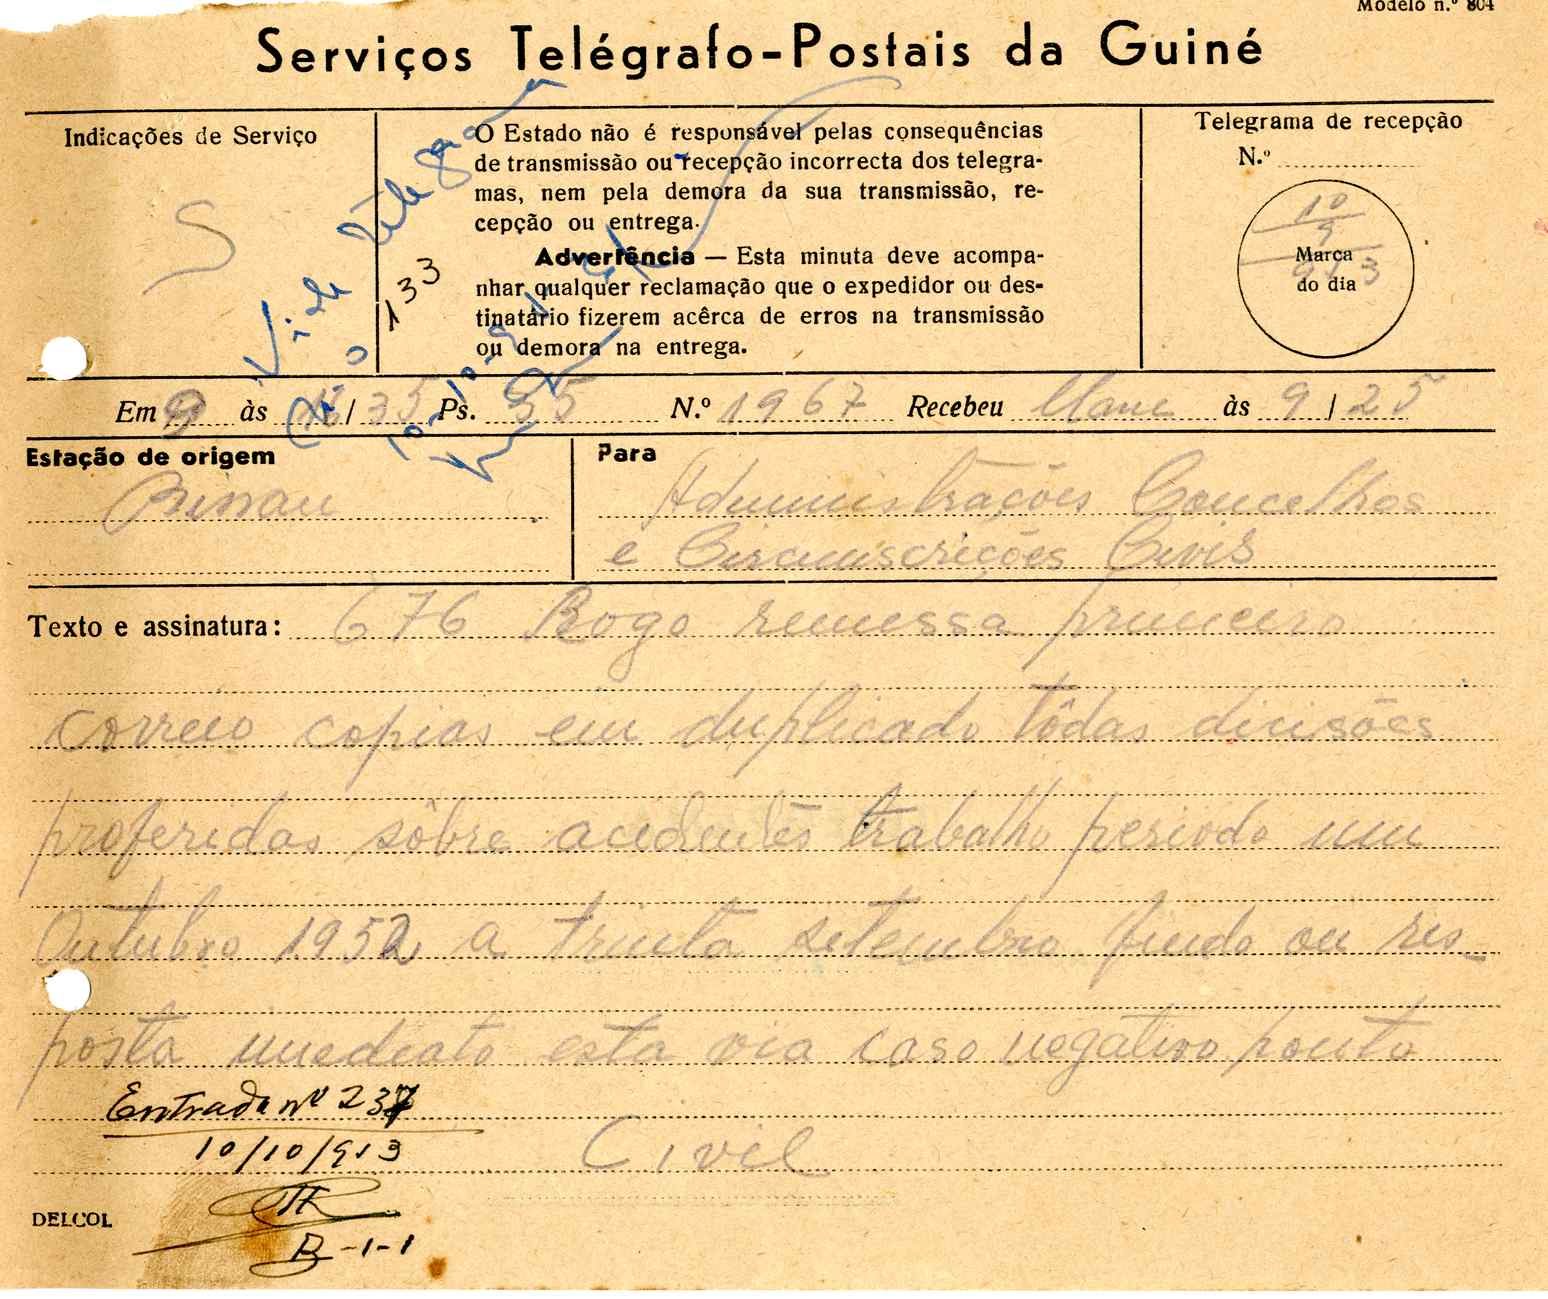 Modelo n.º 804
Serviços Telégrafo-Postais da Guiné
Indicações de Serviço
S
O Estado não é responsável pelas consequências
de transmissão ou recepção incorrecta dos telegra-
mas, nem pela demora da sua transmissão, re-
cepção ou entrega.
Advertência — Esta minuta deve acompa-
nhar qualquer reclamação que o expedidor ou des-
tinatário fizerem acêrca de erros na transmissão
ou demora na entrega.
Telegrama de recepção
N.º
10
9
Marca
do dia
Vide
133
Em 9 às / 35 Ps. 35 N.º 1967 Recebeu às 9 / 25
Estação de origem
Bissau
Para
Administrações Concelhos
e Circunscrições Civis
Texto e assinatura: 676 Rogo remessa primeiro
correio copias em duplicado tôdas dicisões
proferidas sôbre acidentes trabalho periodo um
Outubro 1952 a trinta setembro findo ou res-
posta imediato esta via caso negativo ponto
Civil
Entrada nº 237
10/10/953
B-1-1
DELCOL